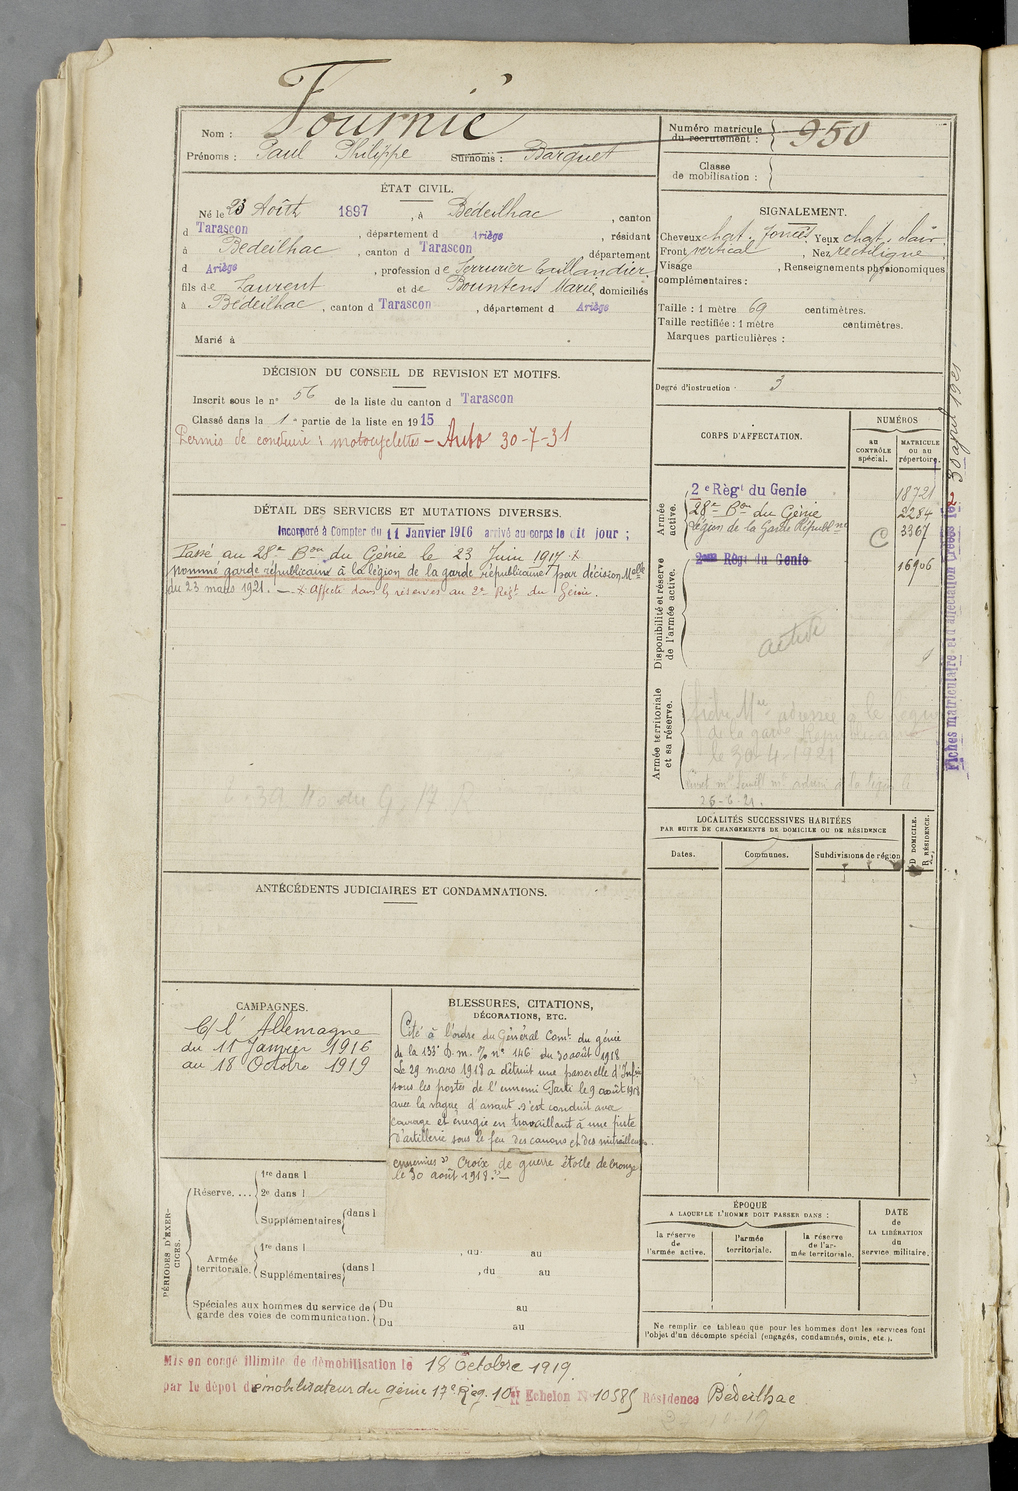 Fournié
Nom :
Prénoms : Paul Philippe Surnoms : Barquet
Numéro matricule du recrutement : 950
Classe de mobilisation :
ÉTAT CIVIL.
Né le 23 Août 1897, à Bédeilhac, canton
d Tarascon, département d Ariège, résidant
à Bédeilhac, canton d Tarascon département
d Ariège, profession de Serrurier taillandier
fils de Laurent et de Bountens Marie, domiciliés
à Bédeilhac, canton d Tarascon, département d Ariège
Marié à
SIGNALEMENT.
Cheveux chat. foncés Yeux chat. clair
Front vertical, Nez rectiligne
Visage , Renseignements physionomiques
complémentaires :
Taille : 1 mètre 69 centimètres.
Taille rectifiée : 1 mètre centimètres.
Marques particulières :
Degré d'instruction · 3
DÉCISION DU CONSEIL DE REVISION ET MOTIFS.
Inscrit sous le n° 56 de la liste du canton d Tarascon
Classé dans la 1e partie de la liste en 1915
Permis de conduire : motocyclettes – Auto 30-7-31
DÉTAIL DES SERVICES ET MUTATIONS DIVERSES.
Incorporé à Compter du 11 Janvier 1916 arrivé au corps le dit jour ;
Passé au 28e Bon du Génie le 23 Juin 1917. x
Nommé garde républicain à la légion de la garde républicaine par décision Melle
du 23 mars 1921. — x Affecté dans les réserves au 2e Régt du Génie.
CORPS D'AFFECTATION.
NUMÉROS
au CONTRÔLE spécial.
MATRICULE ou au répertoire.
Armée active.
2e Régt du Genie 18721
28e Bon du Génie 2284
Légion de la Garde Républne C 3367
Disponibilité et réserve de l'armée active.
2me Régt du Genie 16906
active
Armée territoriale et sa réserve.
fiche Mle adressée à la légion
de la garde républicaine
le 30-4-1921
25-6-21.
Fiches matriculaire et d'affectation créées le 30 avril 1921
LOCALITÉS SUCCESSIVES HABITÉES
PAR SUITE DE CHANGEMENTS DE DOMICILE OU DE RÉSIDENCE
Dates.
Communes.
Subdivisions de région
D DOMICILE.
R RÉSIDENCE.
ANTÉCÉDENTS JUDICIAIRES ET CONDAMNATIONS.
CAMPAGNES.
C/ l'Allemagne
du 11 Janvier 1916
au 18 Octobre 1919
BLESSURES, CITATIONS,
DÉCORATIONS, ETC.
Cité à l'ordre du Général Comt du génie
de la 133e D.M. n° 146 du 30 août 1918
Le 29 mars 1918 a détruit une passerelle d'Infrie
sous les postes de l'ennemi Parti le 9 août 1918
avec la vague d'assaut s'est conduit avec
courage et énergie en travaillant à une piste
d'artillerie sous le feu des canons et des mitrailleuses
ennemies » Croix de guerre étoile de bronze
le 30 août 1918. —
PÉRIODES D'EXERCICES.
Réserve.... 1re dans l
2e dans l
Supplémentaires dans l
Armée territoriale. 1re dans l , du au
Supplémentaires dans l , du au
Spéciales aux hommes du service de garde des voies de communication. Du au
Du au
ÉPOQUE
A LAQUELLE L'HOMME DOIT PASSER DANS :
la réserve de l'armée active.
l'armée territoriale.
la réserve de l'armée territoriale.
DATE de LA LIBÉRATION du service militaire.
Ne remplir ce tableau que pour les hommes dont les services font
l'objet d'un décompte spécial (engagés, condamnés, omis, etc.).
Mis en congé illimité de démobilisation le 18 Octobre 1919
par le dépôt démobilisateur du génie 17e Rég. 10e Echelon N° 10585 Résidence Bédeilhac